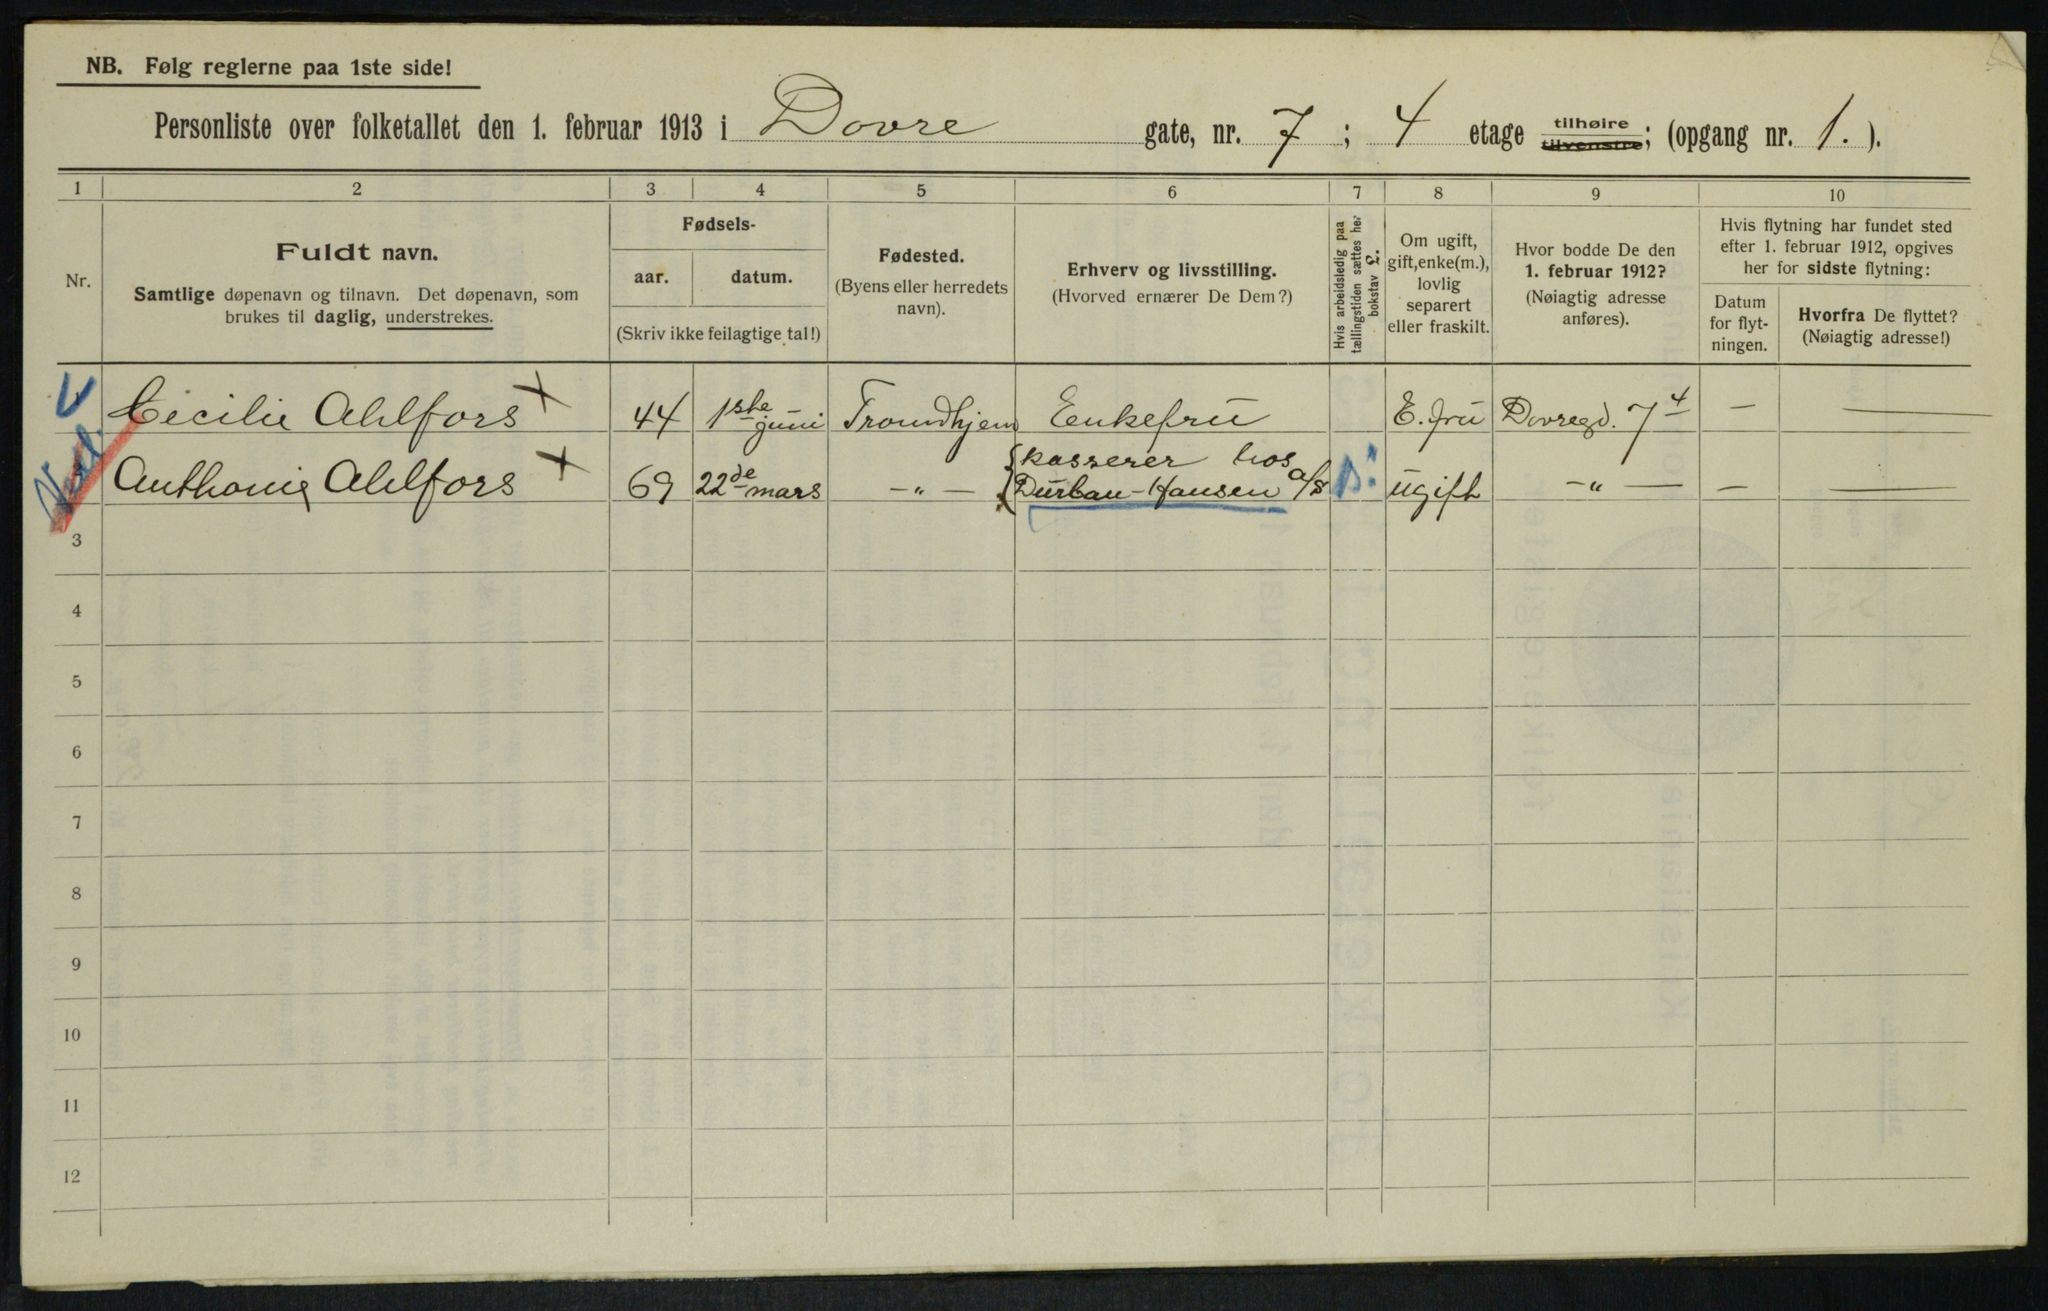 NB. Følg reglerne paa 1ste side!
Personliste over folketallet den 1. februar 1913 i Dovre gate, nr. 7; 4 etage tilhøire tilvenstre; (opgang nr. 1.).
1 2 3 4 5 6 7 8 9 10
Nr.
Fuldt navn.
Samtlige døpenavn og tilnavn. Det døpenavn, som
brukes til daglig, understrekes.
Fødsels-
aar. datum.
(Skriv ikke feilagtige tal!)
Fødested.
(Byens eller herredets
navn).
Erhverv og livsstilling.
(Hvorved ernærer De Dem?)
Hvis arbeidsledig paa
tællingstiden sættes her
bokstav L.
Om ugift,
gift, enke(m.),
lovlig
separert
eller fraskilt.
Hvor bodde De den
1. februar 1912?
(Nøiagtig adresse
anføres).
Hvis flytning har fundet sted
efter 1. februar 1912, opgives
her for sidste flytning:
Datum
for flyt-
ningen.
Hvorfra De flyttet?
(Nøiagtig adresse!)
Cecilie Ahlfors 44 1ste juni Trondhjem Enkefrü E. frü Dovregd. 7 4 — —
Anthonie Ahlfors 69 22de mars —〃— kasserer hos
Durban-Hansen a/s ugift —〃— — —
3
4
5
6
7
8
9
10
11
12